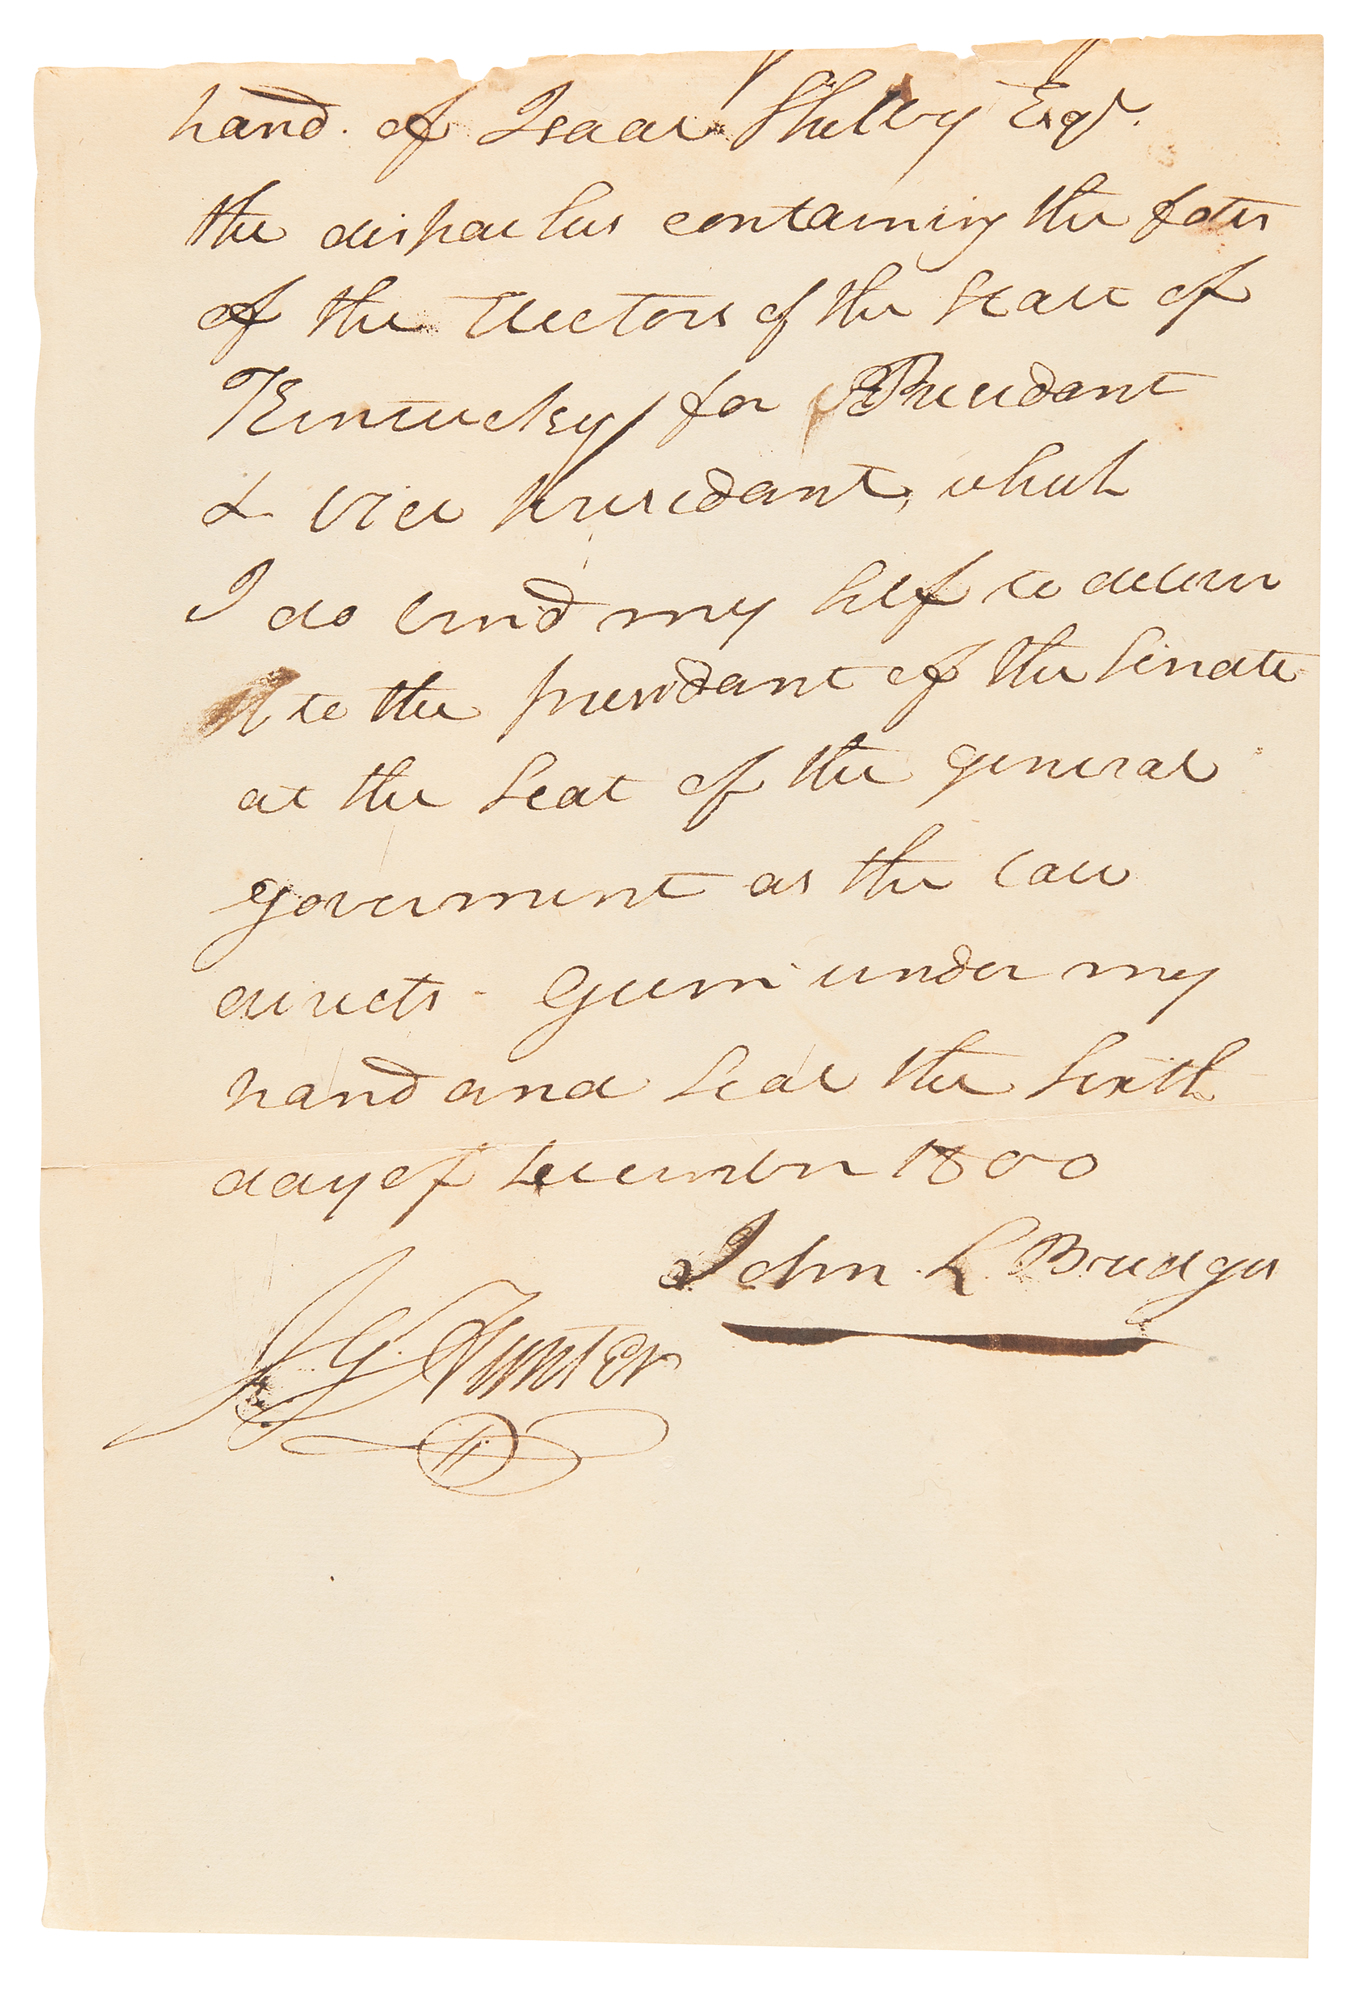 hand. of Isaac Shelby Esqr.
the dispaches containing the fotes
of the Electors of the State of
Kentucky for President
& Vice presedant, which
I do bind my self to deliver
to the presidant of the Senate
at the Seat of the general
government as the law
directs - Given under my
hand and Seal the Sixth
day of December 1800
John L Bridges
J G Hunter